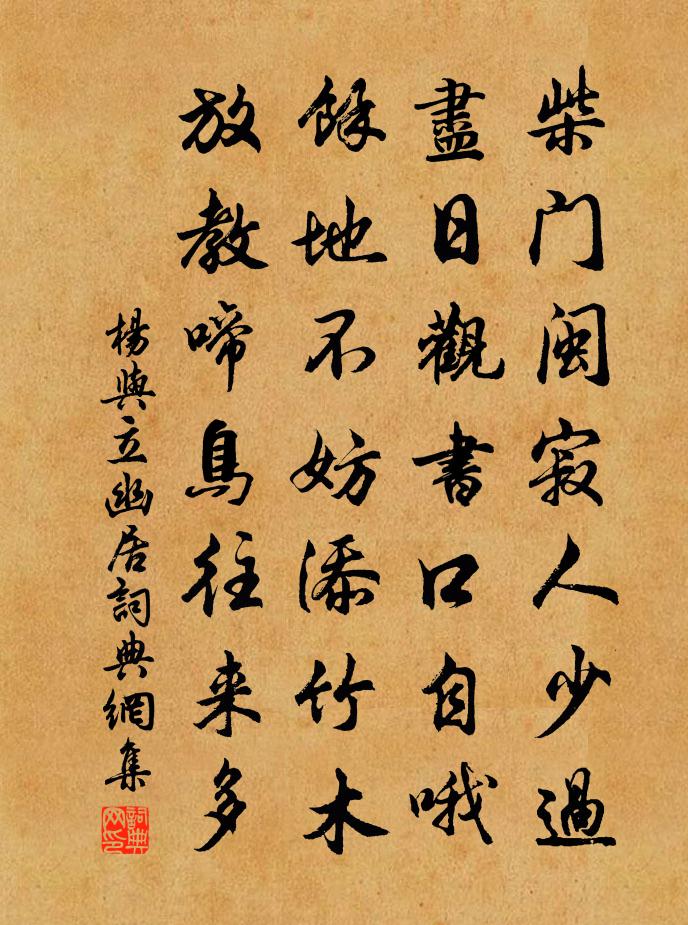 柴门闃寂人少過
盡日觀書口自哦
餘地不妨添竹木
放教啼鳥往来多
楊與立幽居詞典網集
詞典网印